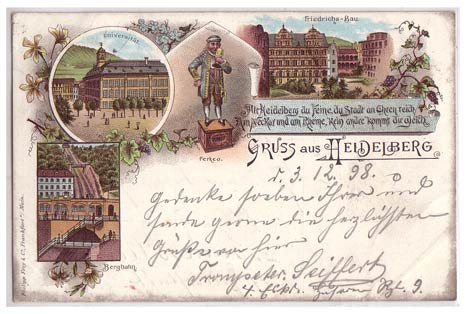 Friedrichs-Bau.
Universität
Alt Heidelberg du Feine, du Stadt an Ehren reich,
Am Neckar und am Rheine, Kein andre kommt dir gleich.
Perkeo.
GRUSS AUS HEIDELBERG
d. 3. 12. 98.
Gedenke soeben Ihrer und
sende gerne die herzlichsten
Grüße von hier
Trompeter Seiffert
Bergbahn.
Philipp Frey & Co., Frankfurt a. Main.